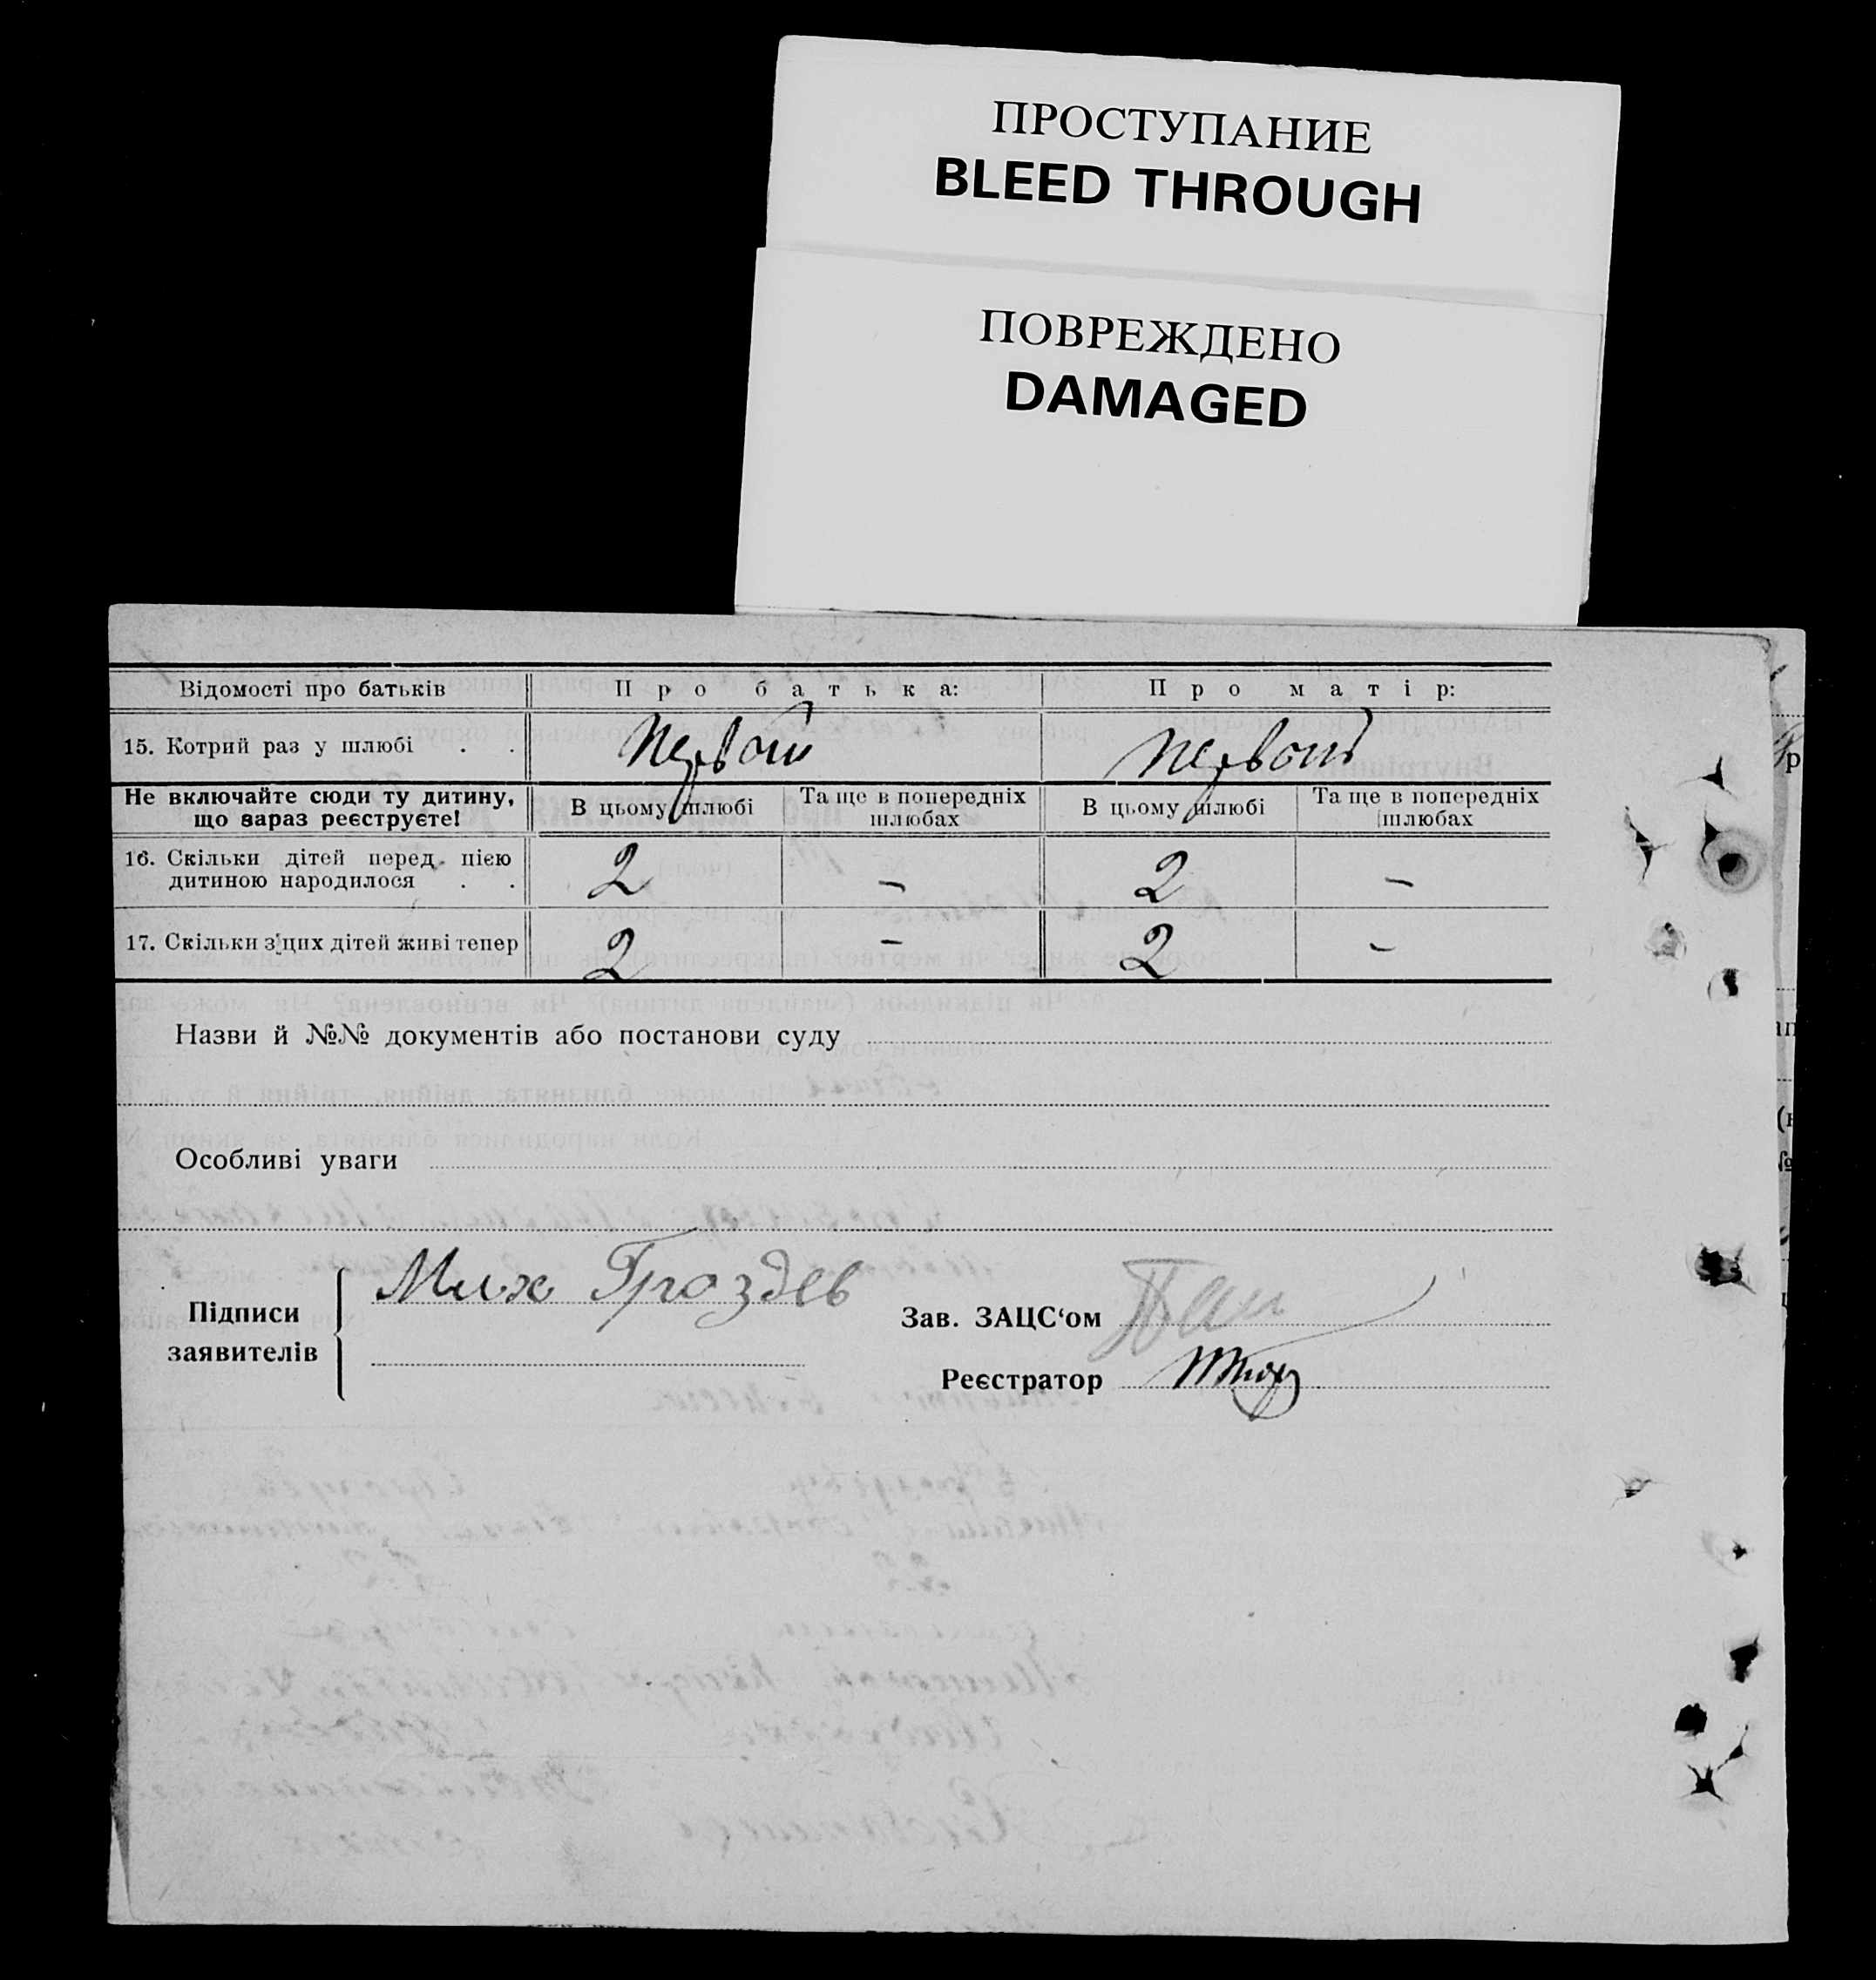 ПРОСТУПАНИЕ
BLEED THROUGH
ПОВРЕЖДЕНО
DAMAGED
Відомості про батьків Про батька: Про матір:
15. Котрий раз у шлюбі . . первой первой
Не включайте сюди ту дитину, що зараз реєструєте! В цьому шлюбі Та ще в попередніх шлюбах В цьому шлюбі Та ще в попередніх шлюбах
16. Скільки дітей перед цією
дитиною народилося . . 2 – 2 –
17. Скільки з'цих дітей живі тепер 2 – 2 –
Назви й №№ документів або постанови суду
Особливі уваги
Підписи заявителів Мих Гроздев
Зав. ЗАЦС‘ом
Реєстратор